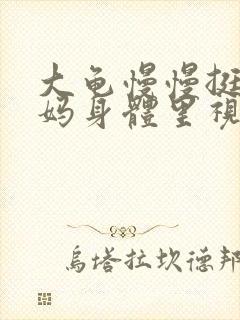 大龟慢慢挺
妈身體里視
烏塔拉坎德邦